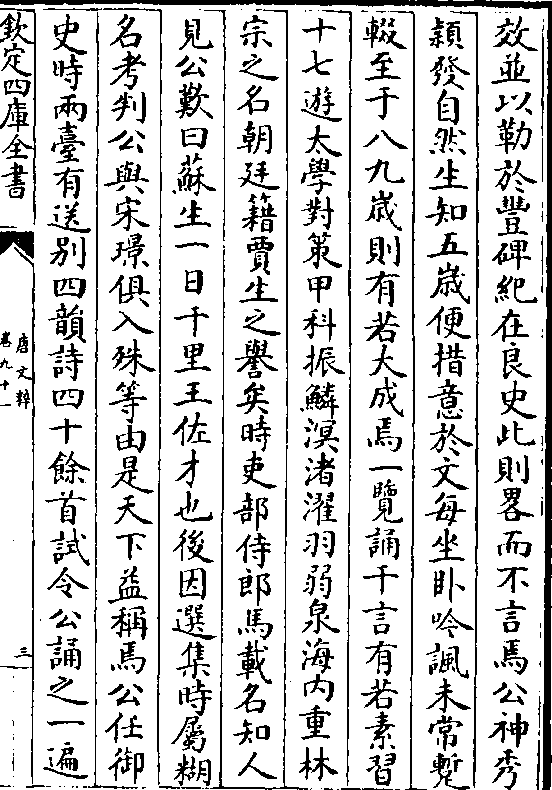 效並以勒於豐碑紀在良史此則畧而不言焉公神秀
頴發自然生知五嵗便措意於文每坐卧吟諷未常蹔
輟至于八九嵗則有若大成焉一覽誦千言有若素習
十七遊太學對策甲科振鱗溟渚濯羽弱泉海内重林
宗之名朝廷籍賈生之譽矣時吏部侍郎馬載名知人
見公歎曰蘇生一日千里王佐才也後因選集時屬糊
名考判公與宋璟俱入殊等由是天下益稱焉公任御
史時兩臺有送别四韻詩四十餘首試令公誦之一遍
欽定四庫全書
唐文粹
卷九十一
三